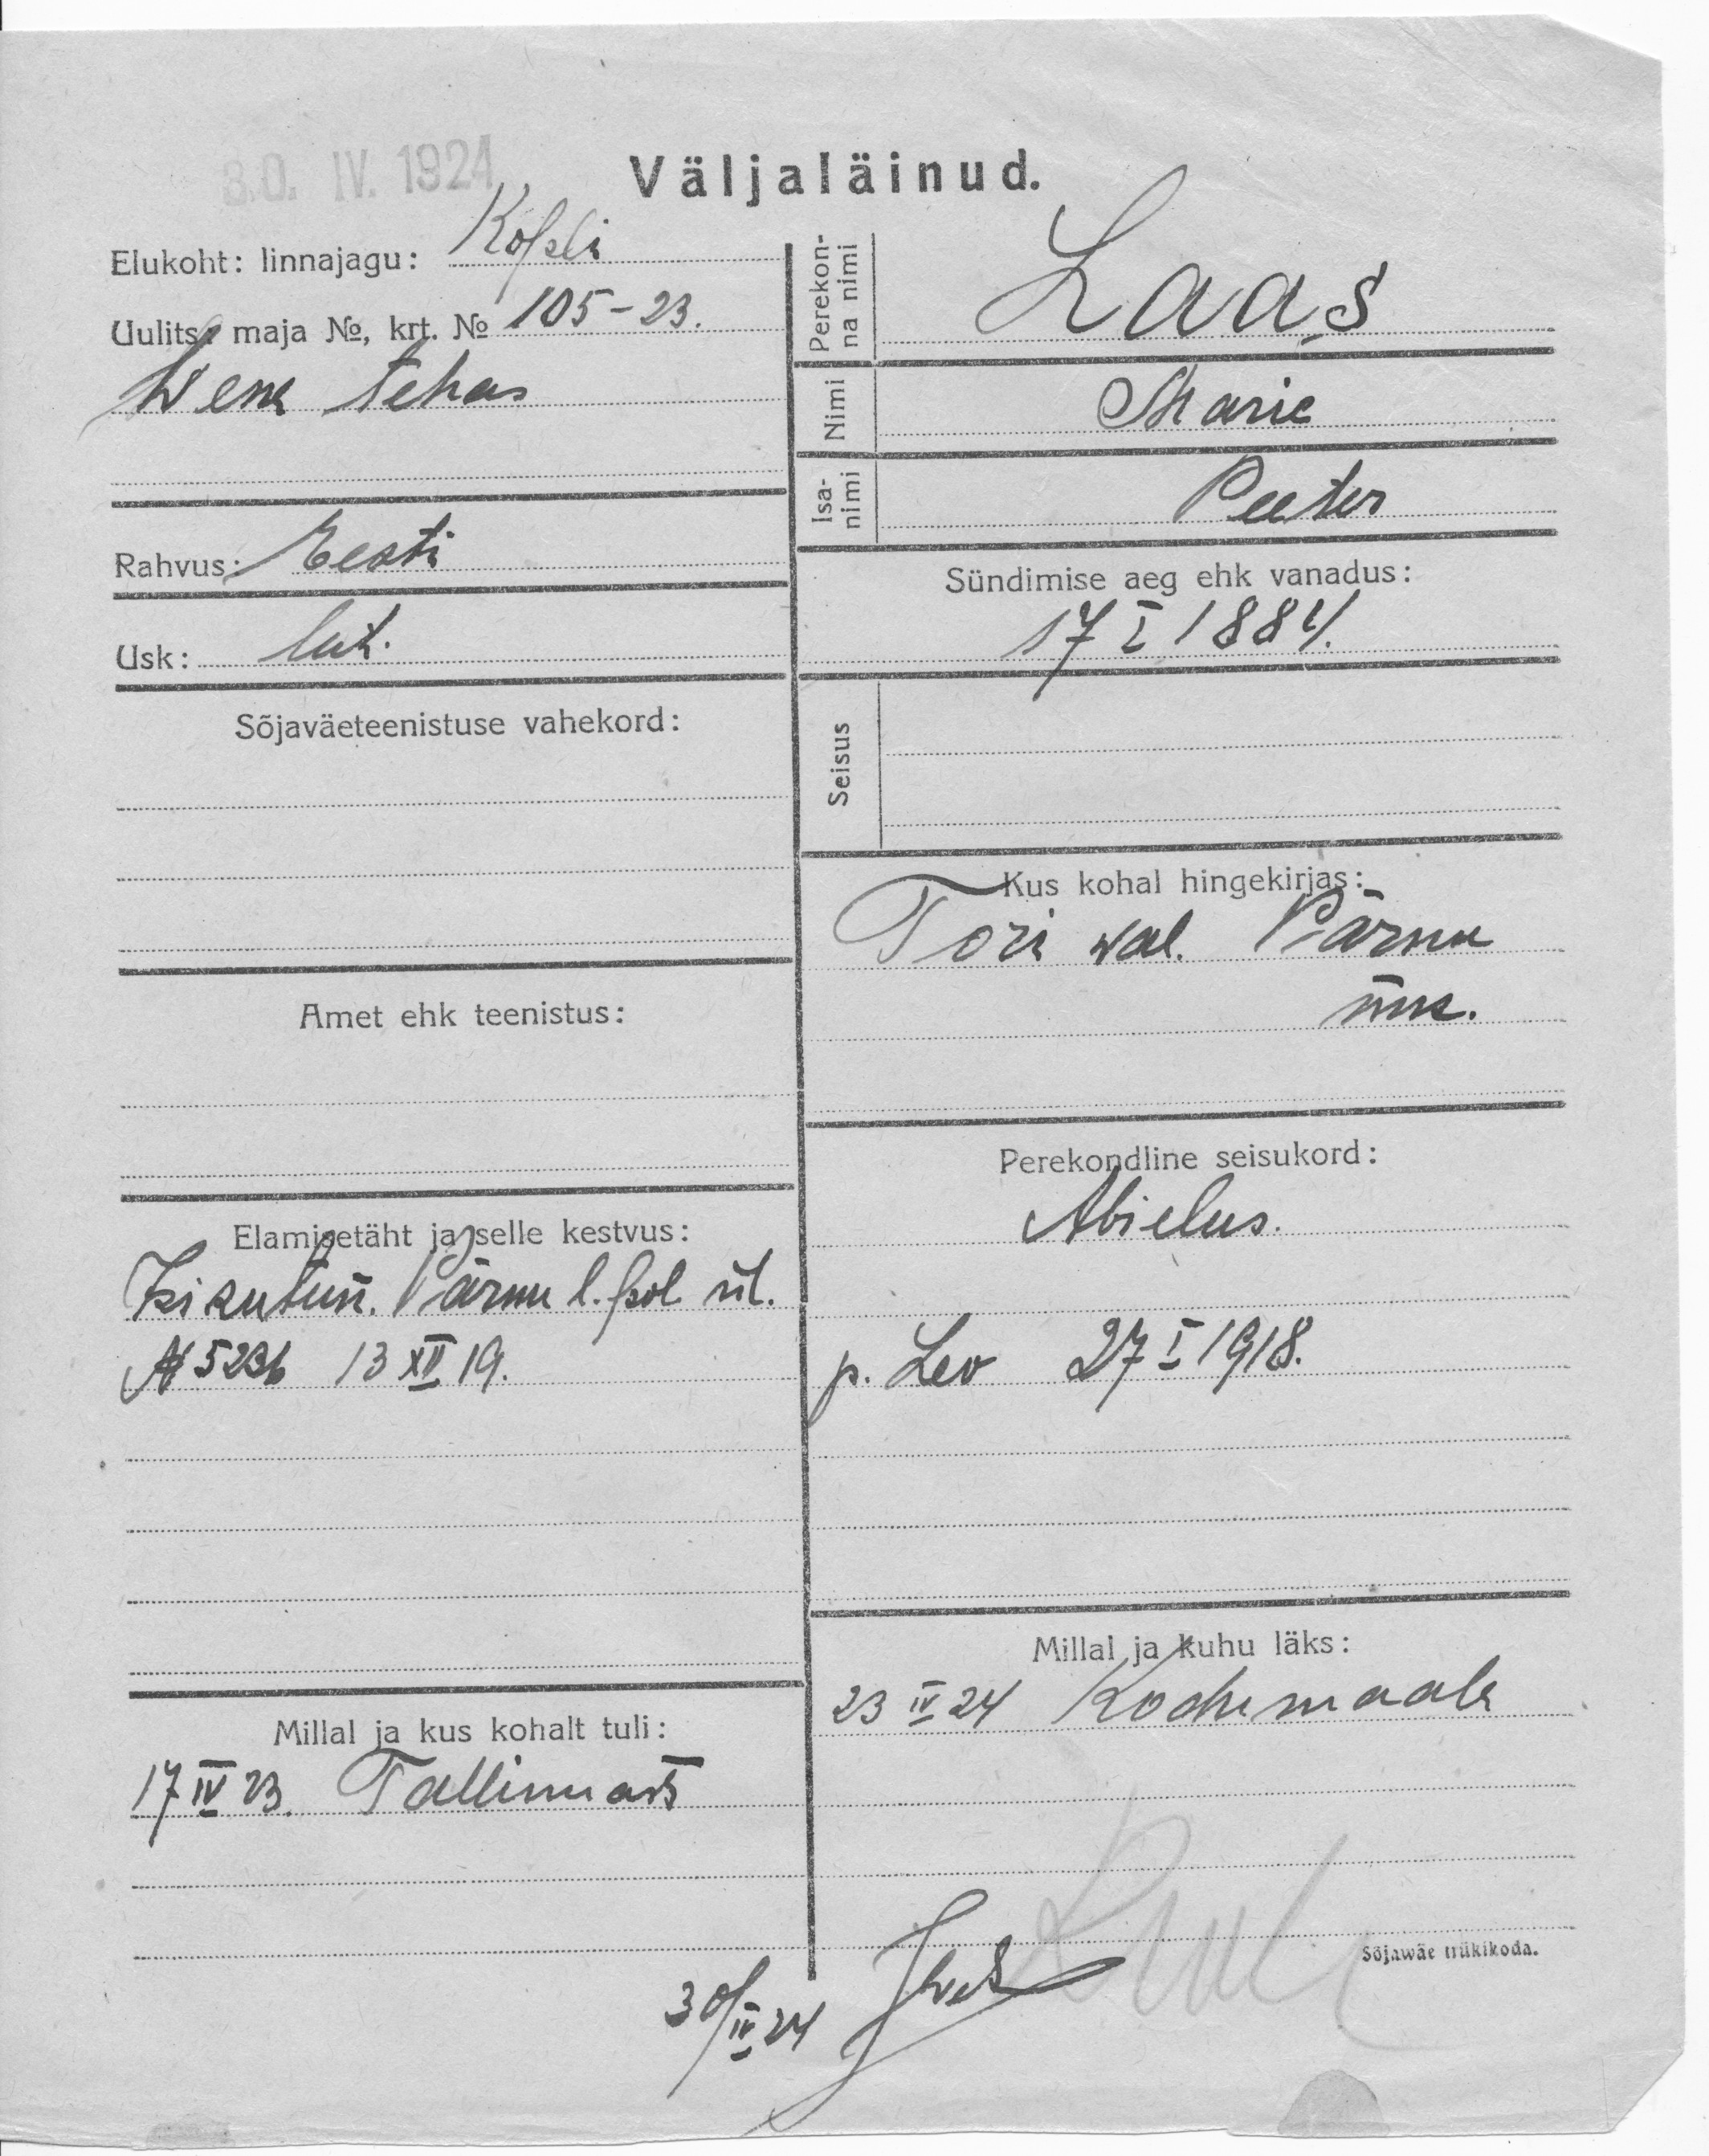 30. IV. 1924
Väljaläinud.
Elukoht: linnajagu: Kopli
Uulits, maja №, krt. № 105-23.
Wene tehas
Rahvus: Eesti
Usk: lut.
Sõjaväeteenistuse vahekord:
Amet ehk teenistus:
Elamisetäht ja selle kestvus:
Isikutun. Pärnu l. pol. ül.
№ 5236 13 XII 19.
Millal ja kus kohalt tuli:
17 IV 23. Tallinnast
Perekon-
na nimi
Laas
Nimi
Marie
Isa-
nimi
Peeter
Sündimise aeg ehk vanadus:
17 I 1884.
Seisus
Kus kohal hingekirjas:
Tori wal. Pärnu
mk.
Perekondline seisukord:
Abielus.
p. Leo 27 I 1918.
Millal ja kuhu läks:
23 IV 24 Kodumaale
Sõjawäe trükikoda.
30/IV 24